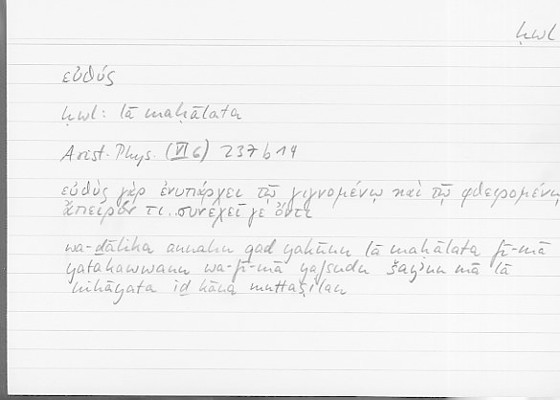 ḥwl
εὐθύς
ḥwl: lā maḥālata
Arist. Phys. (VI 6) 237 b 14
εὐθὺς γὰρ ἐνυπάρχει τῷ γιγνομένῳ καὶ τῷ φθειρομένῳ
ἄπειρόν τι.. συνεχεῖ γε ὄντι
wa-ḏālika annahu qad yakūnu lā maḥālata fī-mā
yatakawwanu wa-fī-mā yafsudu šayʾun mā lā
nihāyata iḏ kāna muttaṣilan